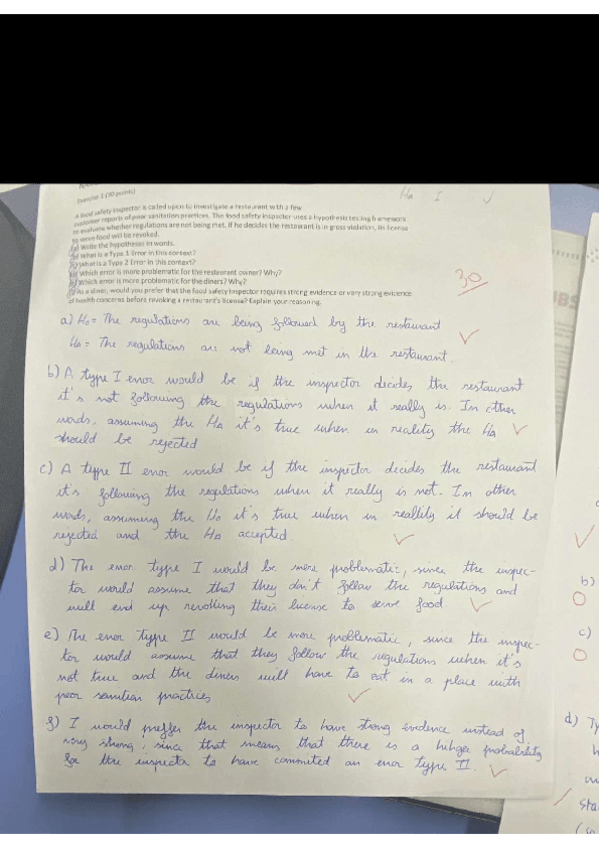 Exercise 1 (30 points)
A food safety inspector is called upon to investigate a restaurant with a few
customer reports of poor sanitation practices. The food safety inspector uses a hypothesis testing framework
to evaluate whether regulations are not being met. If he decides the restaurant is in gross violation, its license
to serve food will be revoked.
Write the hypotheses in words.
What is a Type 1 Error in this context?
What is a Type 2 Error in this context?
Which error is more problematic for the restaurant owner? Why?
Which error is more problematic for the diners? Why?
As a diner, would you prefer that the food safety inspector requires strong evidence or very strong evidence
of health concerns before revoking a restaurant's license? Explain your reasoning.
30
a) H0 = The regulations are being followed by the restaurant
Ha = The regulations are not being met in the restaurant.
b) A type I error would be if the inspector decides the restaurant
it's not following the regulations when it really is. In other
words, assuming the HA it's true when in reality the HA
should be rejected
c) A type II error would be if the inspector decides the restaurant
it's following the regulations when it really is not. In other
words, assuming the H0 it's true when in reallity it should be
rejected and the HA accepted.
d) The error type I would be more problematic, since the inspec-
tor would assume that they don't follow the regulations and
will end up revolling their license to serve food.
e) The error type II would be more problematic, since the inspec-
tor would assume that they follow the regulations when it's
not true and the diners will have to eat in a place with
poor sanitian practices
f) I would preffer the inspector to have strong evidence instead of
very strong, since that means that there is a higher probability
for the inspector to have commited an error type II.
b)
c)
d) Ty
sta